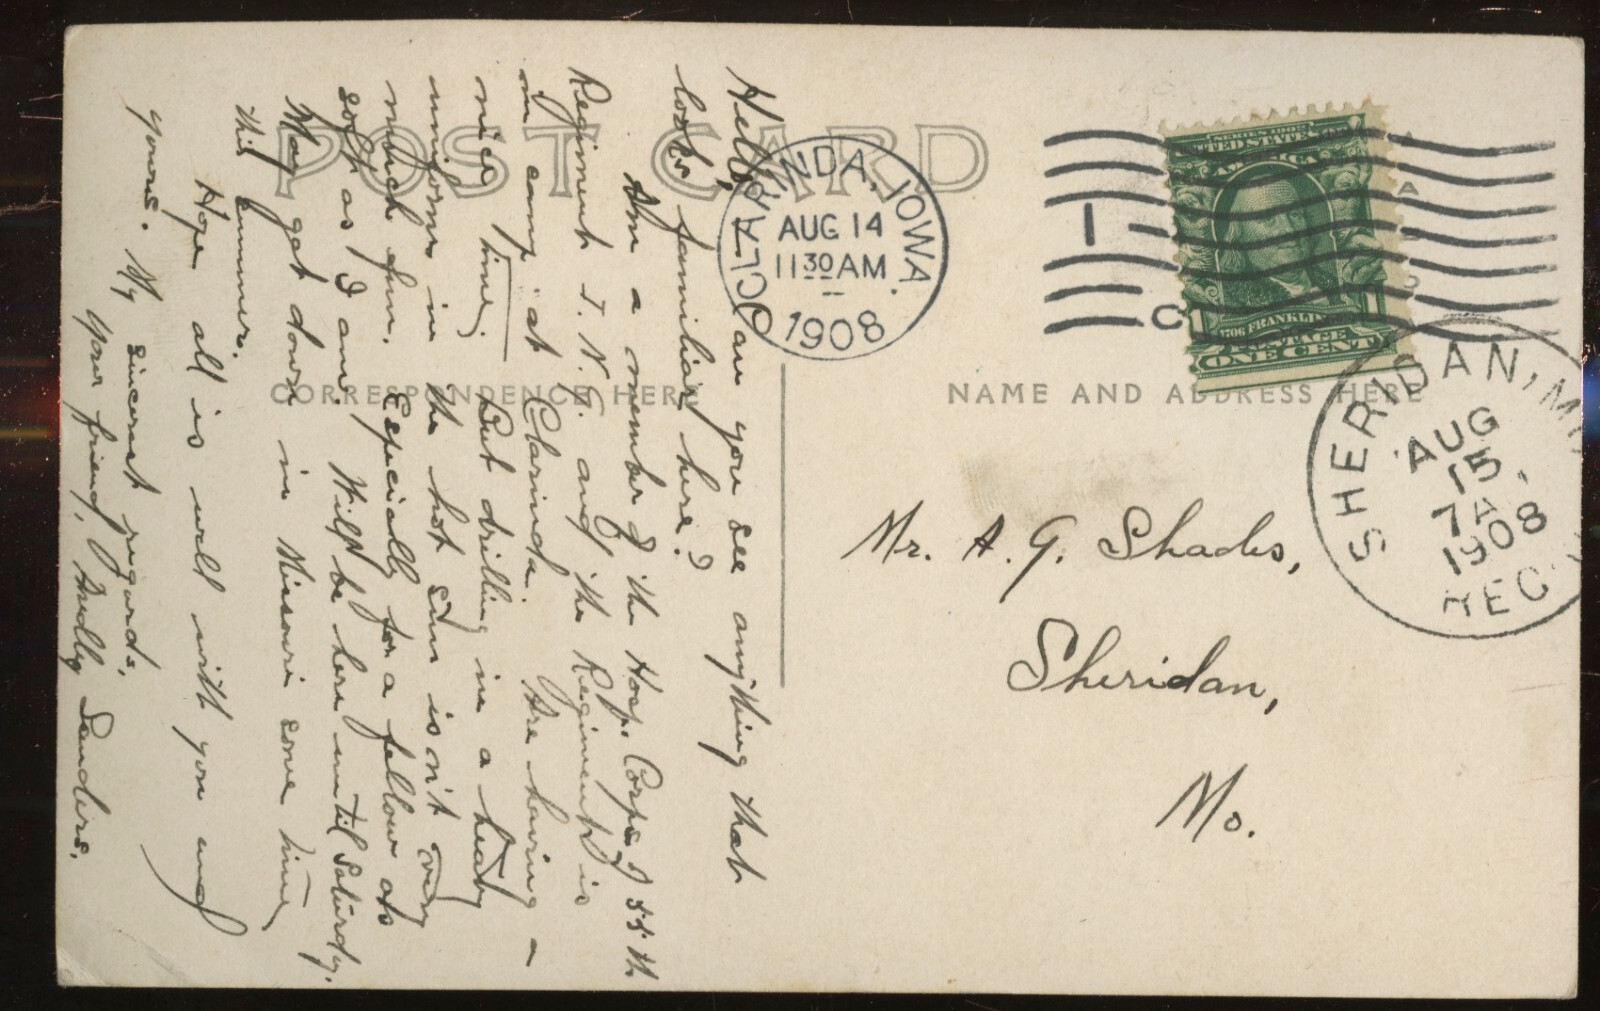 POST CARD
CORRESPONDENCE HERE
NAME AND ADDRESS HERE
CLARINDA, IOWA.
AUG 14
11 30 AM
1908
1
C
SERIES 1902
UNITED STATES OF
AMERICA
1706 FRANKLIN
POSTAGE
ONE CENT
SHERIDAN, M
AUG
15
7 A
1908
REC
Mr. A. G. Shades,
Sheridan,
Mo.
Hello, can you see anything that
looks familiar here?
Am a member of the Hosp. Corps of 55th
Regiment I. N. G. and the Regiment is
in camp at Clarinda. Are having a
nice time. But drilling in a heavy
uniform in the hot sun isn't very
much fun. Especially for a fellow as
soft as I am. Will be here until Saturday.
May get down in Missouri some time
this summer.
Hope all is well with you and
yours. My sincerest regards,
Your friend, Sanders.